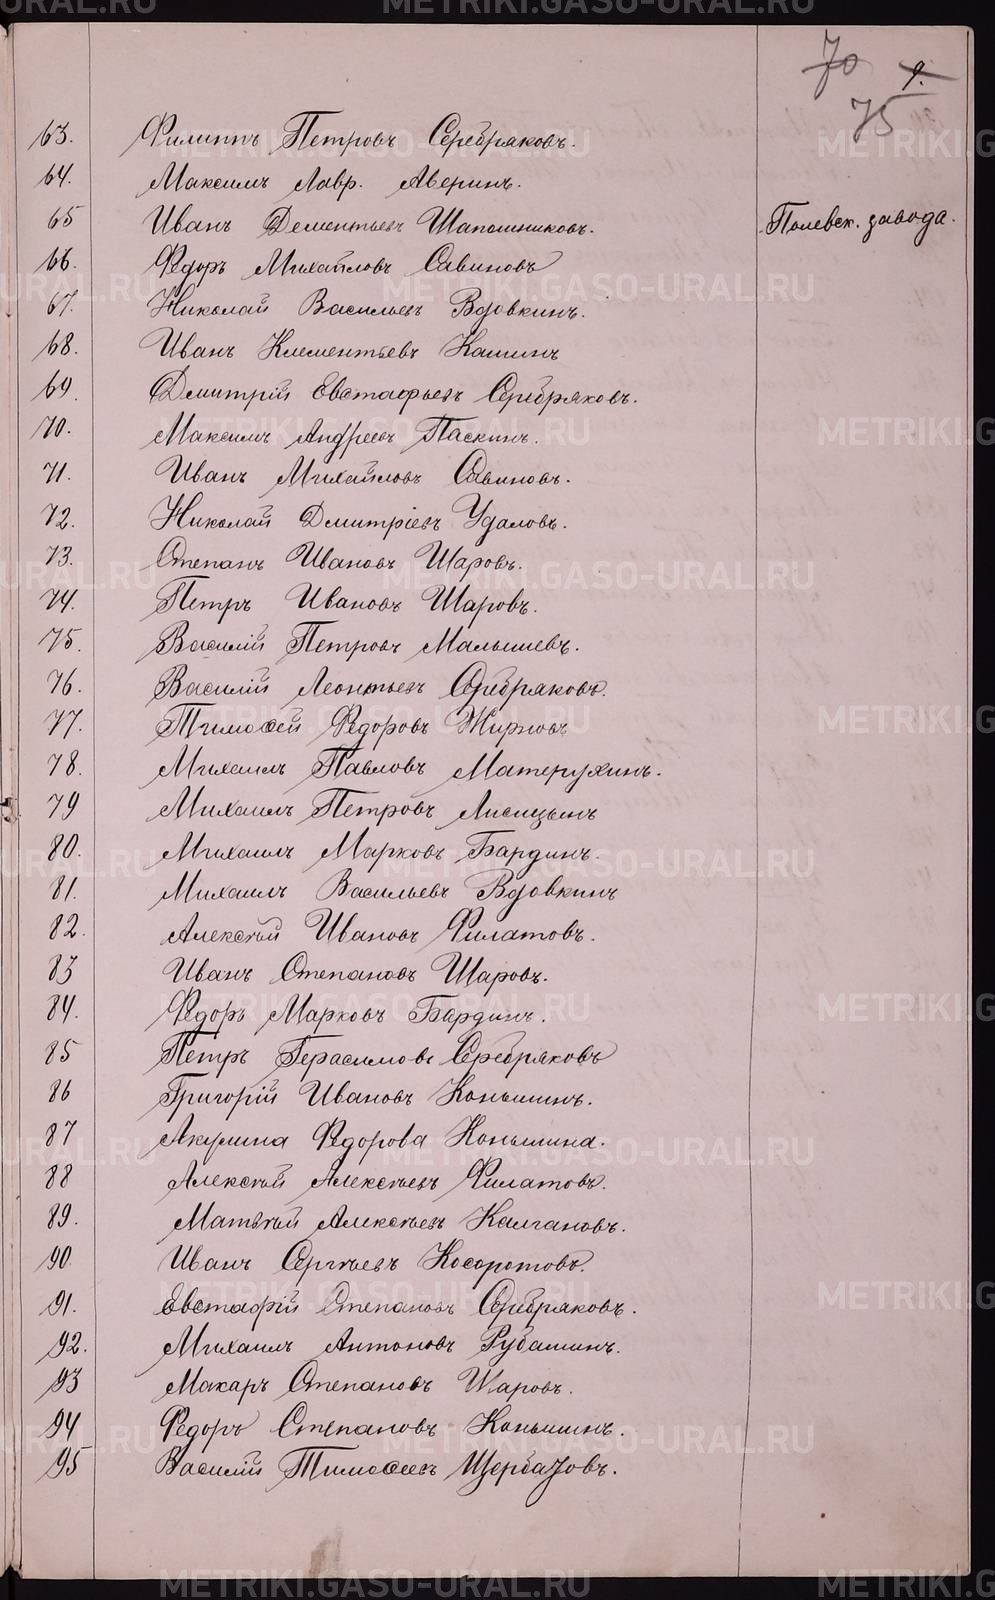 70 9.
75
63. Филиппъ Петровъ Серебряковъ.
64. Максимъ Лавр. Аверинъ.
65 Иванъ Дементьевъ Шапошниковъ. Полевск. завода.
66. Федоръ Михайловъ Савиновъ
67. Николай Васильевъ Вдовкинъ.
68. Иванъ Клементьевъ Кашинъ
69. Дмитрій Евстафьевъ Серебряковъ.
70. Максимъ Андреевъ Паскинъ.
71. Иванъ Михайловъ Савиновъ.
72. Николай Дмитріевъ Удаловъ.
73. Степанъ Ивановъ Шаровъ.
74. Петръ Ивановъ Шаровъ.
75. Василій Петровъ Малышевъ.
76. Василій Леонтьевъ Серебряковъ.
77. Тимоѳей Федоровъ Жирновъ
78. Михаилъ Павловъ Матерухинъ.
79 Михаилъ Петровъ Лисицынъ
80. Михаилъ Марковъ Бардинъ.
81. Михаилъ Васильевъ Вдовкинъ
82. Алексѣй Ивановъ Филатовъ.
83 Иванъ Степановъ Шаровъ.
84. Федоръ Марковъ Бардинъ.
85 Петръ Герасимовъ Серебряковъ
86 Григорій Ивановъ Коньшинъ.
87 Акулина Федорова Коньшина.
88 Алексѣй Алексѣевъ Филатовъ.
89. Матвѣй Алексѣевъ Калгановъ.
90. Иванъ Сергѣевъ Косоротовъ.
91. Евстафій Степановъ Серебряковъ.
92. Михаилъ Антоновъ Рубашинъ.
93 Макаръ Степановъ Шаровъ.
94 Федоръ Степановъ Коньшинъ.
95 Василій Тимоѳеевъ Щербаковъ.
METRIKI.GASO-URAL.RU